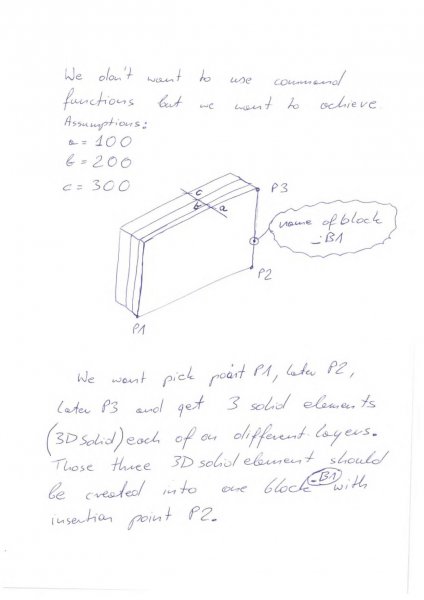 We don't want to use command
functions but we want to achieve.
Assumptions:
a = 100
b = 200
c = 300
c
b a
P3
name of block
_B1
P2
P1
We want pick point P1, later P2,
later P3 and get 3 solid elements
(3D Solid) each of on different layers.
Those three 3D solid element should
be created into one block _B1 with
insertion point P2.